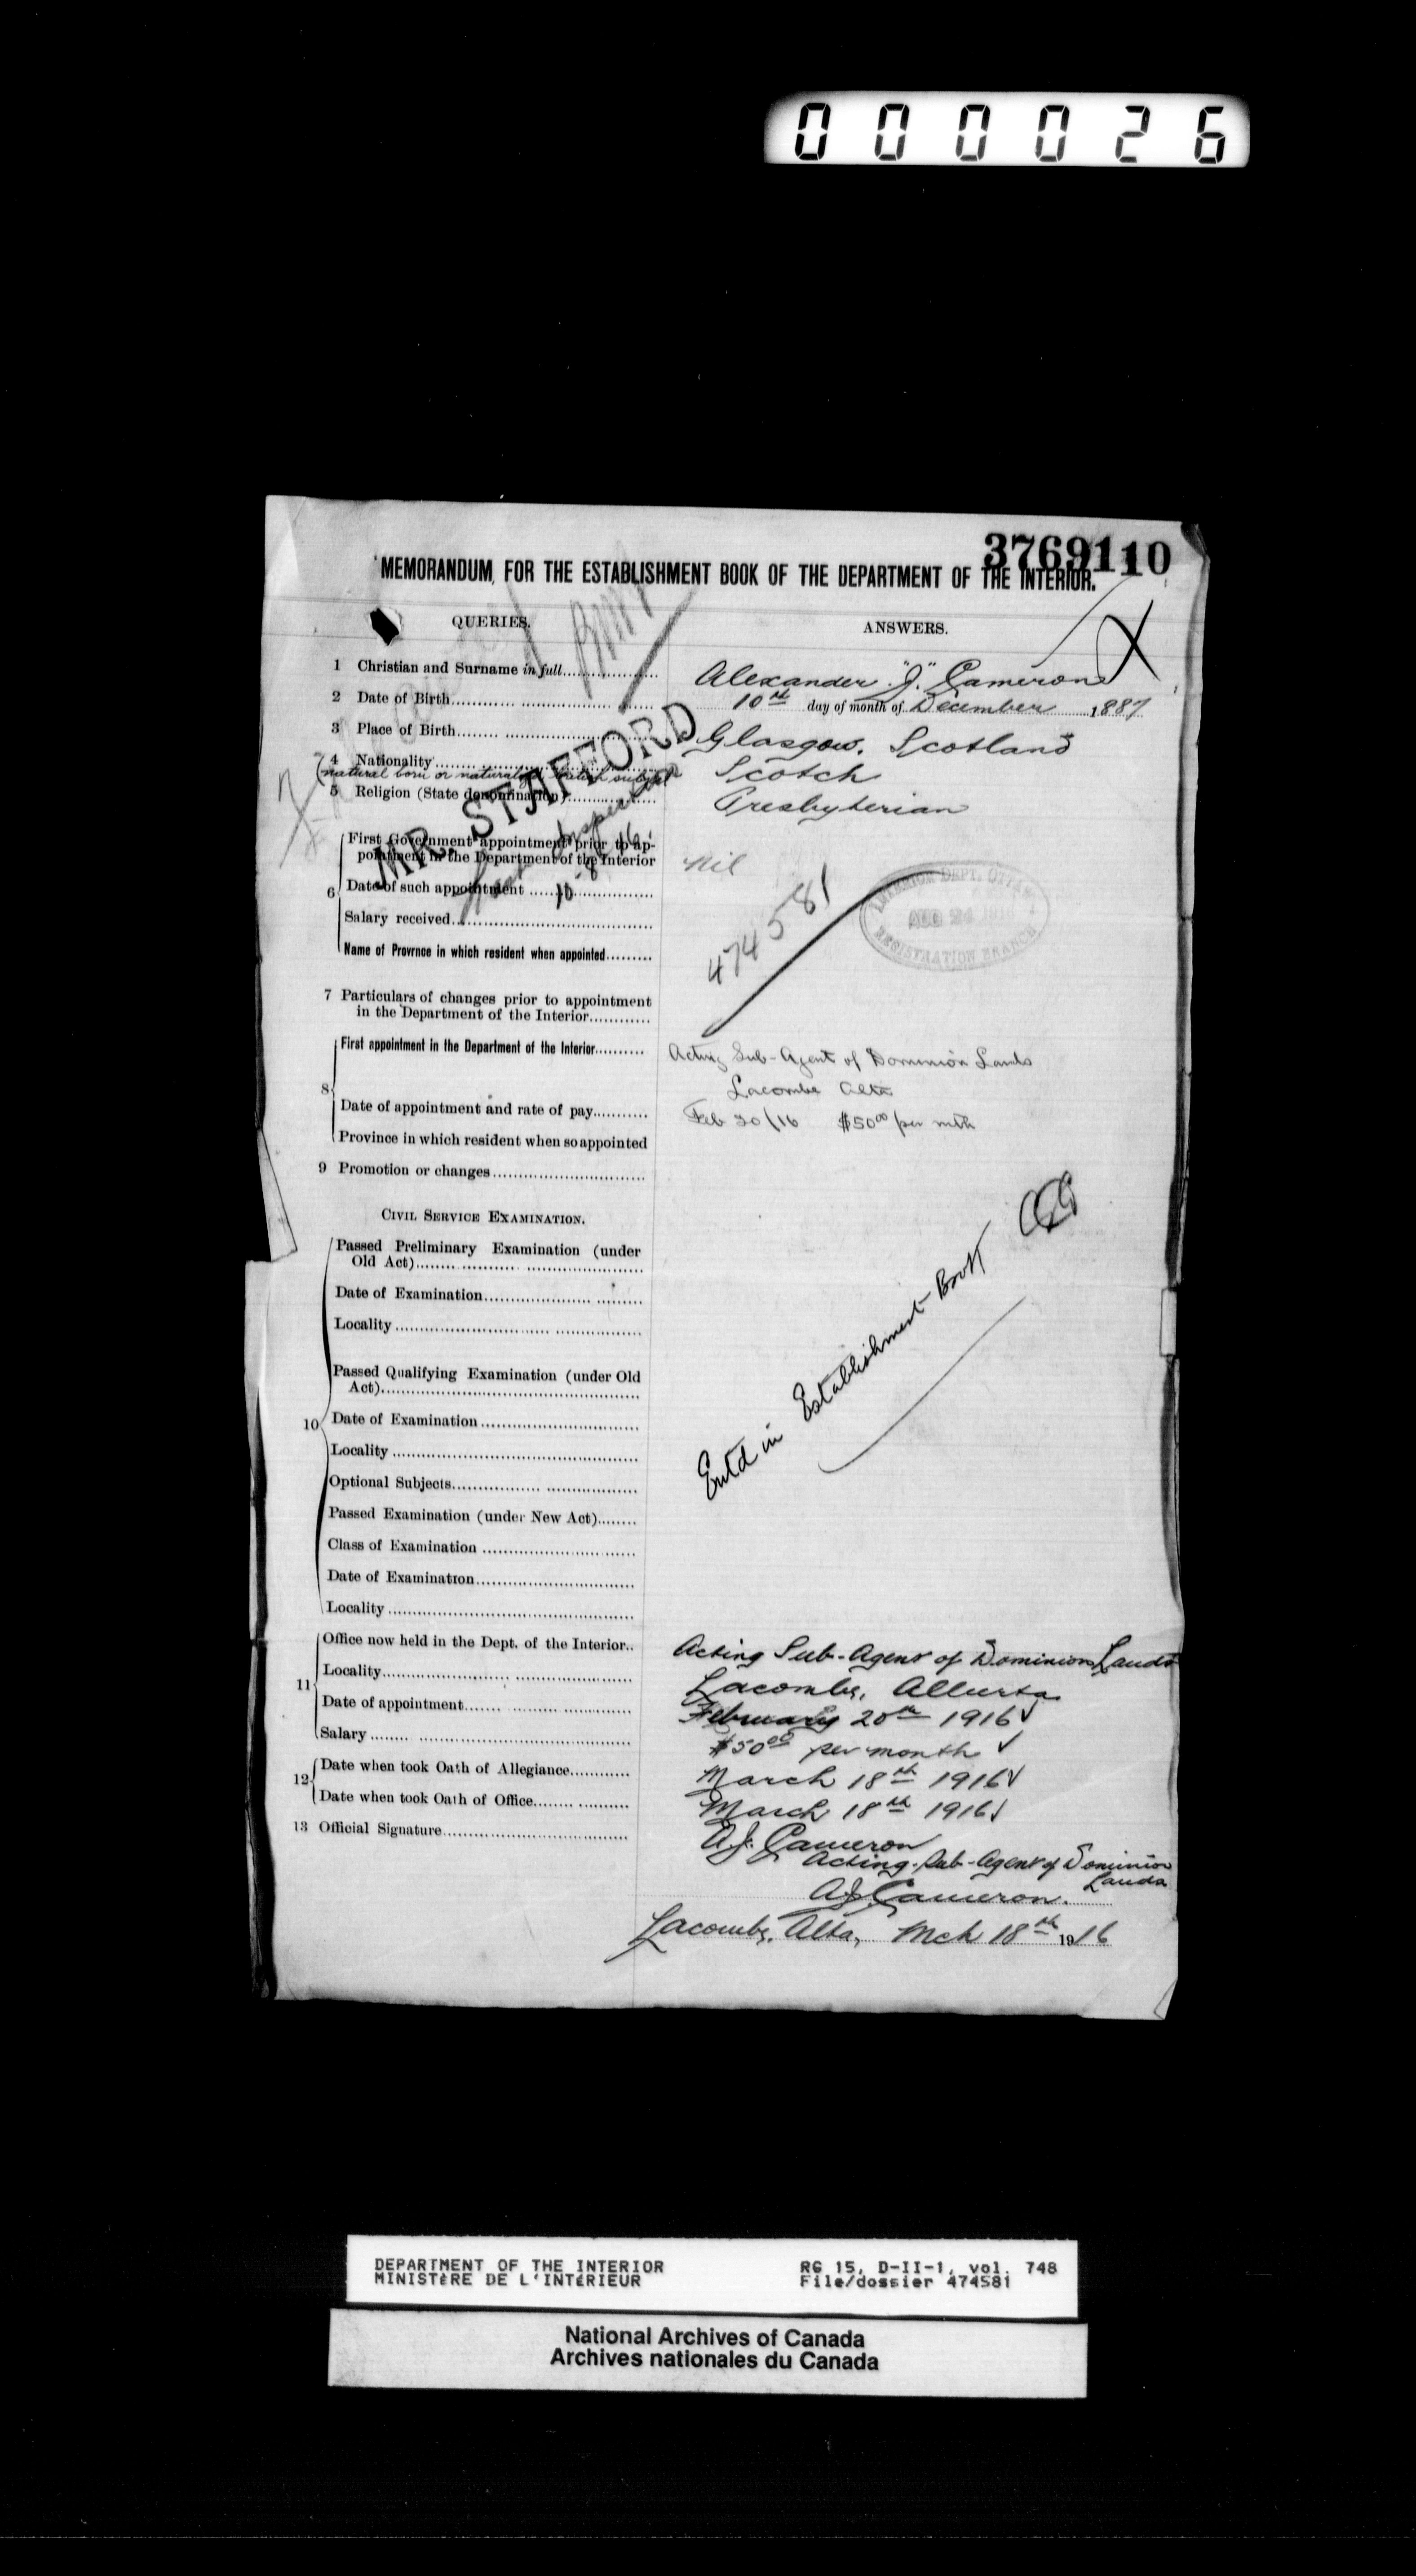 000026
3769110
MEMORANDUM FOR THE ESTABLISHMENT BOOK OF THE DEPARTMENT OF THE INTERIOR.
QUERIES.
ANSWERS.
1 Christian and Surname in full Alexander "J." Cameron
2 Date of Birth 10th day of month of December 1887
3 Place of Birth Glasgow. Scotland
4 Nationality Scotch
(natural born or naturalized British subject
5 Religion (State denomination) Presbyterian
MR. STAFFORD
6 First Government appointment prior to ap-
pointment in the Department of the Interior Nil
Date of such appointment
Salary received
Name of Provrnce in which resident when appointed
474581
INTERIOR DEPT. OTTAWA
AUG 24 1916
REGISTRATION BRANCH
7 Particulars of changes prior to appointment
in the Department of the Interior
8 First appointment in the Department of the Interior Acting Sub-Agent of Dominion Lands
Lacombe Alta
Date of appointment and rate of pay Feb 20/16 $50.00 per mth
Province in which resident when so appointed
9 Promotion or changes
CIVIL SERVICE EXAMINATION.
10 Passed Preliminary Examination (under
Old Act)
Date of Examination
Locality
Passed Qualifying Examination (under Old
Act)
Date of Examination
Locality
Optional Subjects
Passed Examination (under New Act)
Class of Examination
Date of Examination
Locality
Entd in Establishment Book
11 Office now held in the Dept. of the Interior Acting Sub-Agent of Dominion Lands
Locality Lacombe, Alberta
Date of appointment February 20th 1916
Salary $50.00 per month
12 Date when took Oath of Allegiance March 18th 1916
Date when took Oath of Office March 18th 1916
13 Official Signature A.J. Cameron
Acting-Sub-Agent of Dominion
Lands
A.J. Cameron.
Lacombe, Alta, Mch 18th 1916
DEPARTMENT OF THE INTERIOR RG 15, D-II-1, vol. 748
MINISTÈRE DE L'INTÉRIEUR File/dossier 474581
National Archives of Canada
Archives nationales du Canada